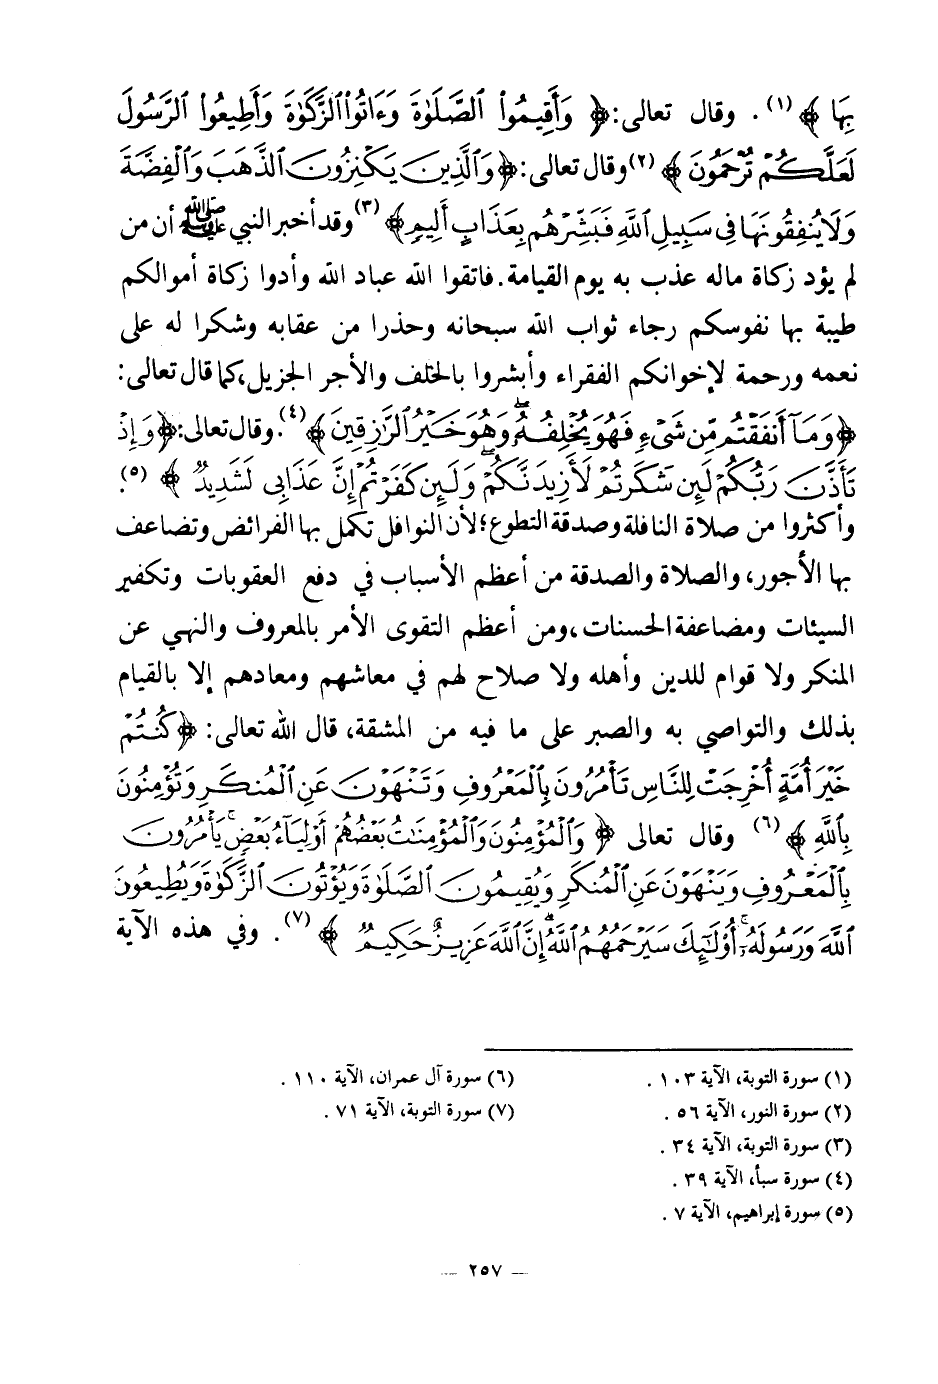 بِهَا ﴾ (١) . وقال تعالى : ﴿ وَأَقِيمُوا۟ ٱلصَّلَوٰةَ وَءَاتُوا۟ ٱلزَّكَوٰةَ وَأَطِيعُوا۟ ٱلرَّسُولَ
لَعَلَّكُمْ تُرْحَمُونَ ﴾ (٢) وقال تعالى : ﴿ وَٱلَّذِينَ يَكْنِزُونَ ٱلذَّهَبَ وَٱلْفِضَّةَ
وَلَا يُنفِقُونَهَا فِى سَبِيلِ ٱللَّهِ فَبَشِّرْهُم بِعَذَابٍ أَلِيمٍ ﴾ (٣) وقد أخبر النبي ﷺ أن من
لم يؤد زكاة ماله عذب به يوم القيامة . فاتقوا الله عباد الله وأدوا زكاة أموالكم
طيبة بها نفوسكم رجاء ثواب الله سبحانه وحذرا من عقابه وشكرا له على
نعمه ورحمة لإخوانكم الفقراء وأبشروا بالخلف والأجر الجزيل ، كما قال تعالى :
﴿ وَمَآ أَنفَقْتُم مِّن شَىْءٍ فَهُوَ يُخْلِفُهُۥ وَهُوَ خَيْرُ ٱلرَّٰزِقِينَ ﴾ (٤) . وقال تعالى : ﴿ وَإِذْ
تَأَذَّنَ رَبُّكُمْ لَئِن شَكَرْتُمْ لَأَزِيدَنَّكُمْ وَلَئِن كَفَرْتُمْ إِنَّ عَذَابِى لَشَدِيدٌ ﴾ (٥) .
وأكثروا من صلاة النافلة وصدقة التطوع ؛ لأن النوافل تكمل بها الفرائض وتضاعف
بها الأجور ، والصلاة والصدقة من أعظم الأسباب في دفع العقوبات وتكفير
السيئات ومضاعفة الحسنات ، ومن أعظم التقوى الأمر بالمعروف والنهي عن
المنكر ولا قوام للدين وأهله ولا صلاح لهم في معاشهم ومعادهم إلا بالقيام
بذلك والتواصي به والصبر على ما فيه من المشقة ، قال الله تعالى : ﴿ كُنتُمْ
خَيْرَ أُمَّةٍ أُخْرِجَتْ لِلنَّاسِ تَأْمُرُونَ بِٱلْمَعْرُوفِ وَتَنْهَوْنَ عَنِ ٱلْمُنكَرِ وَتُؤْمِنُونَ
بِٱللَّهِ ﴾ (٦) وقال تعالى ﴿ وَٱلْمُؤْمِنُونَ وَٱلْمُؤْمِنَٰتُ بَعْضُهُمْ أَوْلِيَآءُ بَعْضٍ يَأْمُرُونَ
بِٱلْمَعْرُوفِ وَيَنْهَوْنَ عَنِ ٱلْمُنكَرِ وَيُقِيمُونَ ٱلصَّلَوٰةَ وَيُؤْتُونَ ٱلزَّكَوٰةَ وَيُطِيعُونَ
ٱللَّهَ وَرَسُولَهُۥٓ أُو۟لَٰٓئِكَ سَيَرْحَمُهُمُ ٱللَّهُ إِنَّ ٱللَّهَ عَزِيزٌ حَكِيمٌ ﴾ (٧) . وفي هذه الآية
(١) سورة التوبة، الآية ١٠٣ .
(٢) سورة النور، الآية ٥٦ .
(٣) سورة التوبة، الآية ٣٤ .
(٤) سورة سبأ، الآية ٣٩ .
(٥) سورة إبراهيم، الآية ٧ .
(٦) سورة آل عمران، الآية ١١٠ .
(٧) سورة التوبة، الآية ٧١ .
– ٢٥٧ –